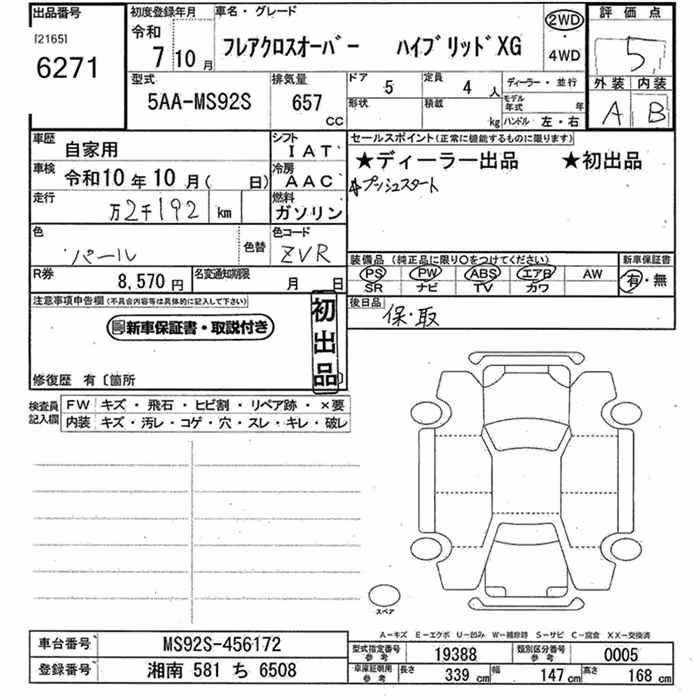 出品番号
[2165]
6271
初度登録年月
令和
7年 10月
車名・グレード
フレアクロスオーバー ハイブリッドXG
2WD
・
4WD
評価点
5
外装 内装
A B
型式
5AA-MS92S
排気量
657
CC
ドア
5
定員
4人
形状
積載
kg
ディーラー・並行
モデル年式 年
ハンドル 左・右
車歴
自家用
シフト
IAT
車検
令和10年10月( 日)
冷房
AAC
走行
万2千192 km
燃料
ガソリン
色
パール
色替
色コード
ZVR
R券
8,570円
名変通知期限
月 日
セールスポイント(正常に機能するものに限ります)
★ディーラー出品 ★初出品
★プッシュスタート
装備品 (純正品に限り〇をつけてください)
PS PW ABS エアB AW
SR ナビ TV カワ
新車保証書
有・無
後日品
保・取
注意事項申告欄(不具合内容等は具体的に記入して下さい)
新車保証書・取説付き
初出品
修復歴 有〔箇所
検査員記入欄
FW キズ・飛石・ヒビ割・リペア跡・×要
内装 キズ・汚レ・コゲ・穴・スレ・キレ・破レ
スペア
A-キズ E-エクボ U-凹み W-補修跡 S-サビ C-腐食 XX-交換済
車台番号
MS92S-456172
登録番号
湘南 581 ち 6508
型式指定番号 参考
19388
類別区分番号 参考
0005
車庫証明用 参考
長さ 339 cm
幅 147 cm
高さ 168 cm